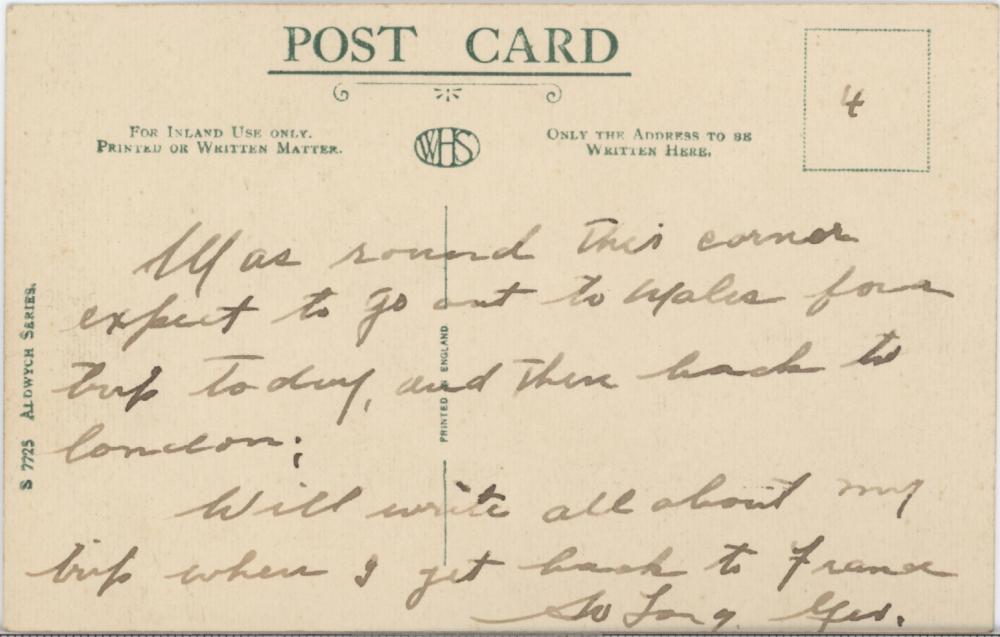 POST CARD
FOR INLAND USE ONLY.
PRINTED OR WRITTEN MATTER.
WHS
ONLY THE ADDRESS TO BE
WRITTEN HERE.
4
Was round this corner
expect to go out to Wales for a
trip today, and then back to
London;
Will write all about my
trip when I get back to France
So Long. Geo.
PRINTED IN ENGLAND
S 7725 ALDWYCH SERIES.